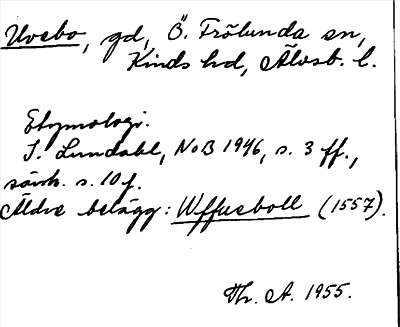 Uvebo, gd, Ö. Frölunda sn,
Kinds hd, Älvsb. l.
Etymologi.
I. Lundahl, NoB 1946, s. 3 ff.,
särsk. s. 10 f.
Äldre belägg: Wffueboll (1557).
Th. A. 1955.